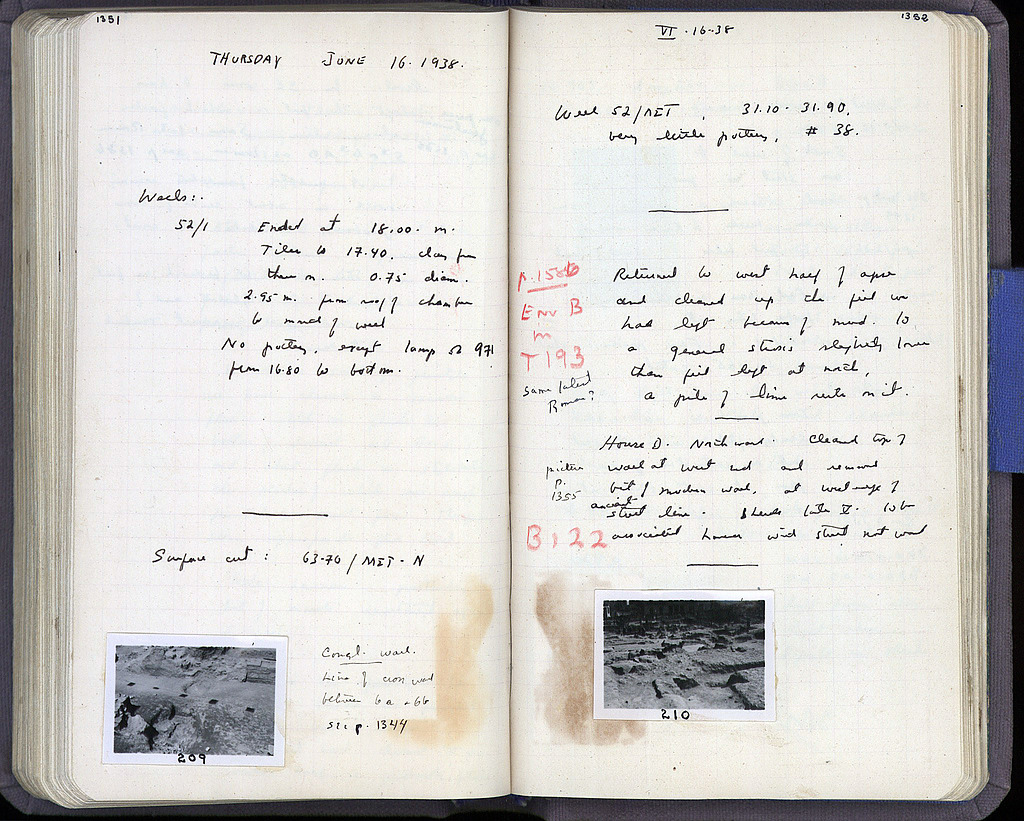 1351
THURSDAY JUNE 16. 1938.
Wells:.
52/1 Ended at 18.00. m.
Tiles to 17.40, clay from
there on. 0.75 diam.
2.95 m. from roof of chamber
to mouth of well
No pottery, except lamp SL 971
from 16.80 to bottom.
Surface cut: 63-70/MET-N
209
Congl. wall.
Line of cross wall
between 6a - 6b
see p. 1344
1352
VI-16-38
Well 52/MET, 31.10-31.90,
very little pottery, # 38.
p. 1586
ENV B
in
T193
same latest
Roman?
Returned to west half of apse
and cleaned up the fill we
had left because of mud. To
a general stosis slightly lower
than fill left at north,
a pile of lime rests on it.
picture
p.
1355
B:22
House D. North wall. Cleaned top of
wall at west end and removed
bit of modern wall, at west edge of
ancient
street line. Sherds late V. To be
associated however with street not wall
210